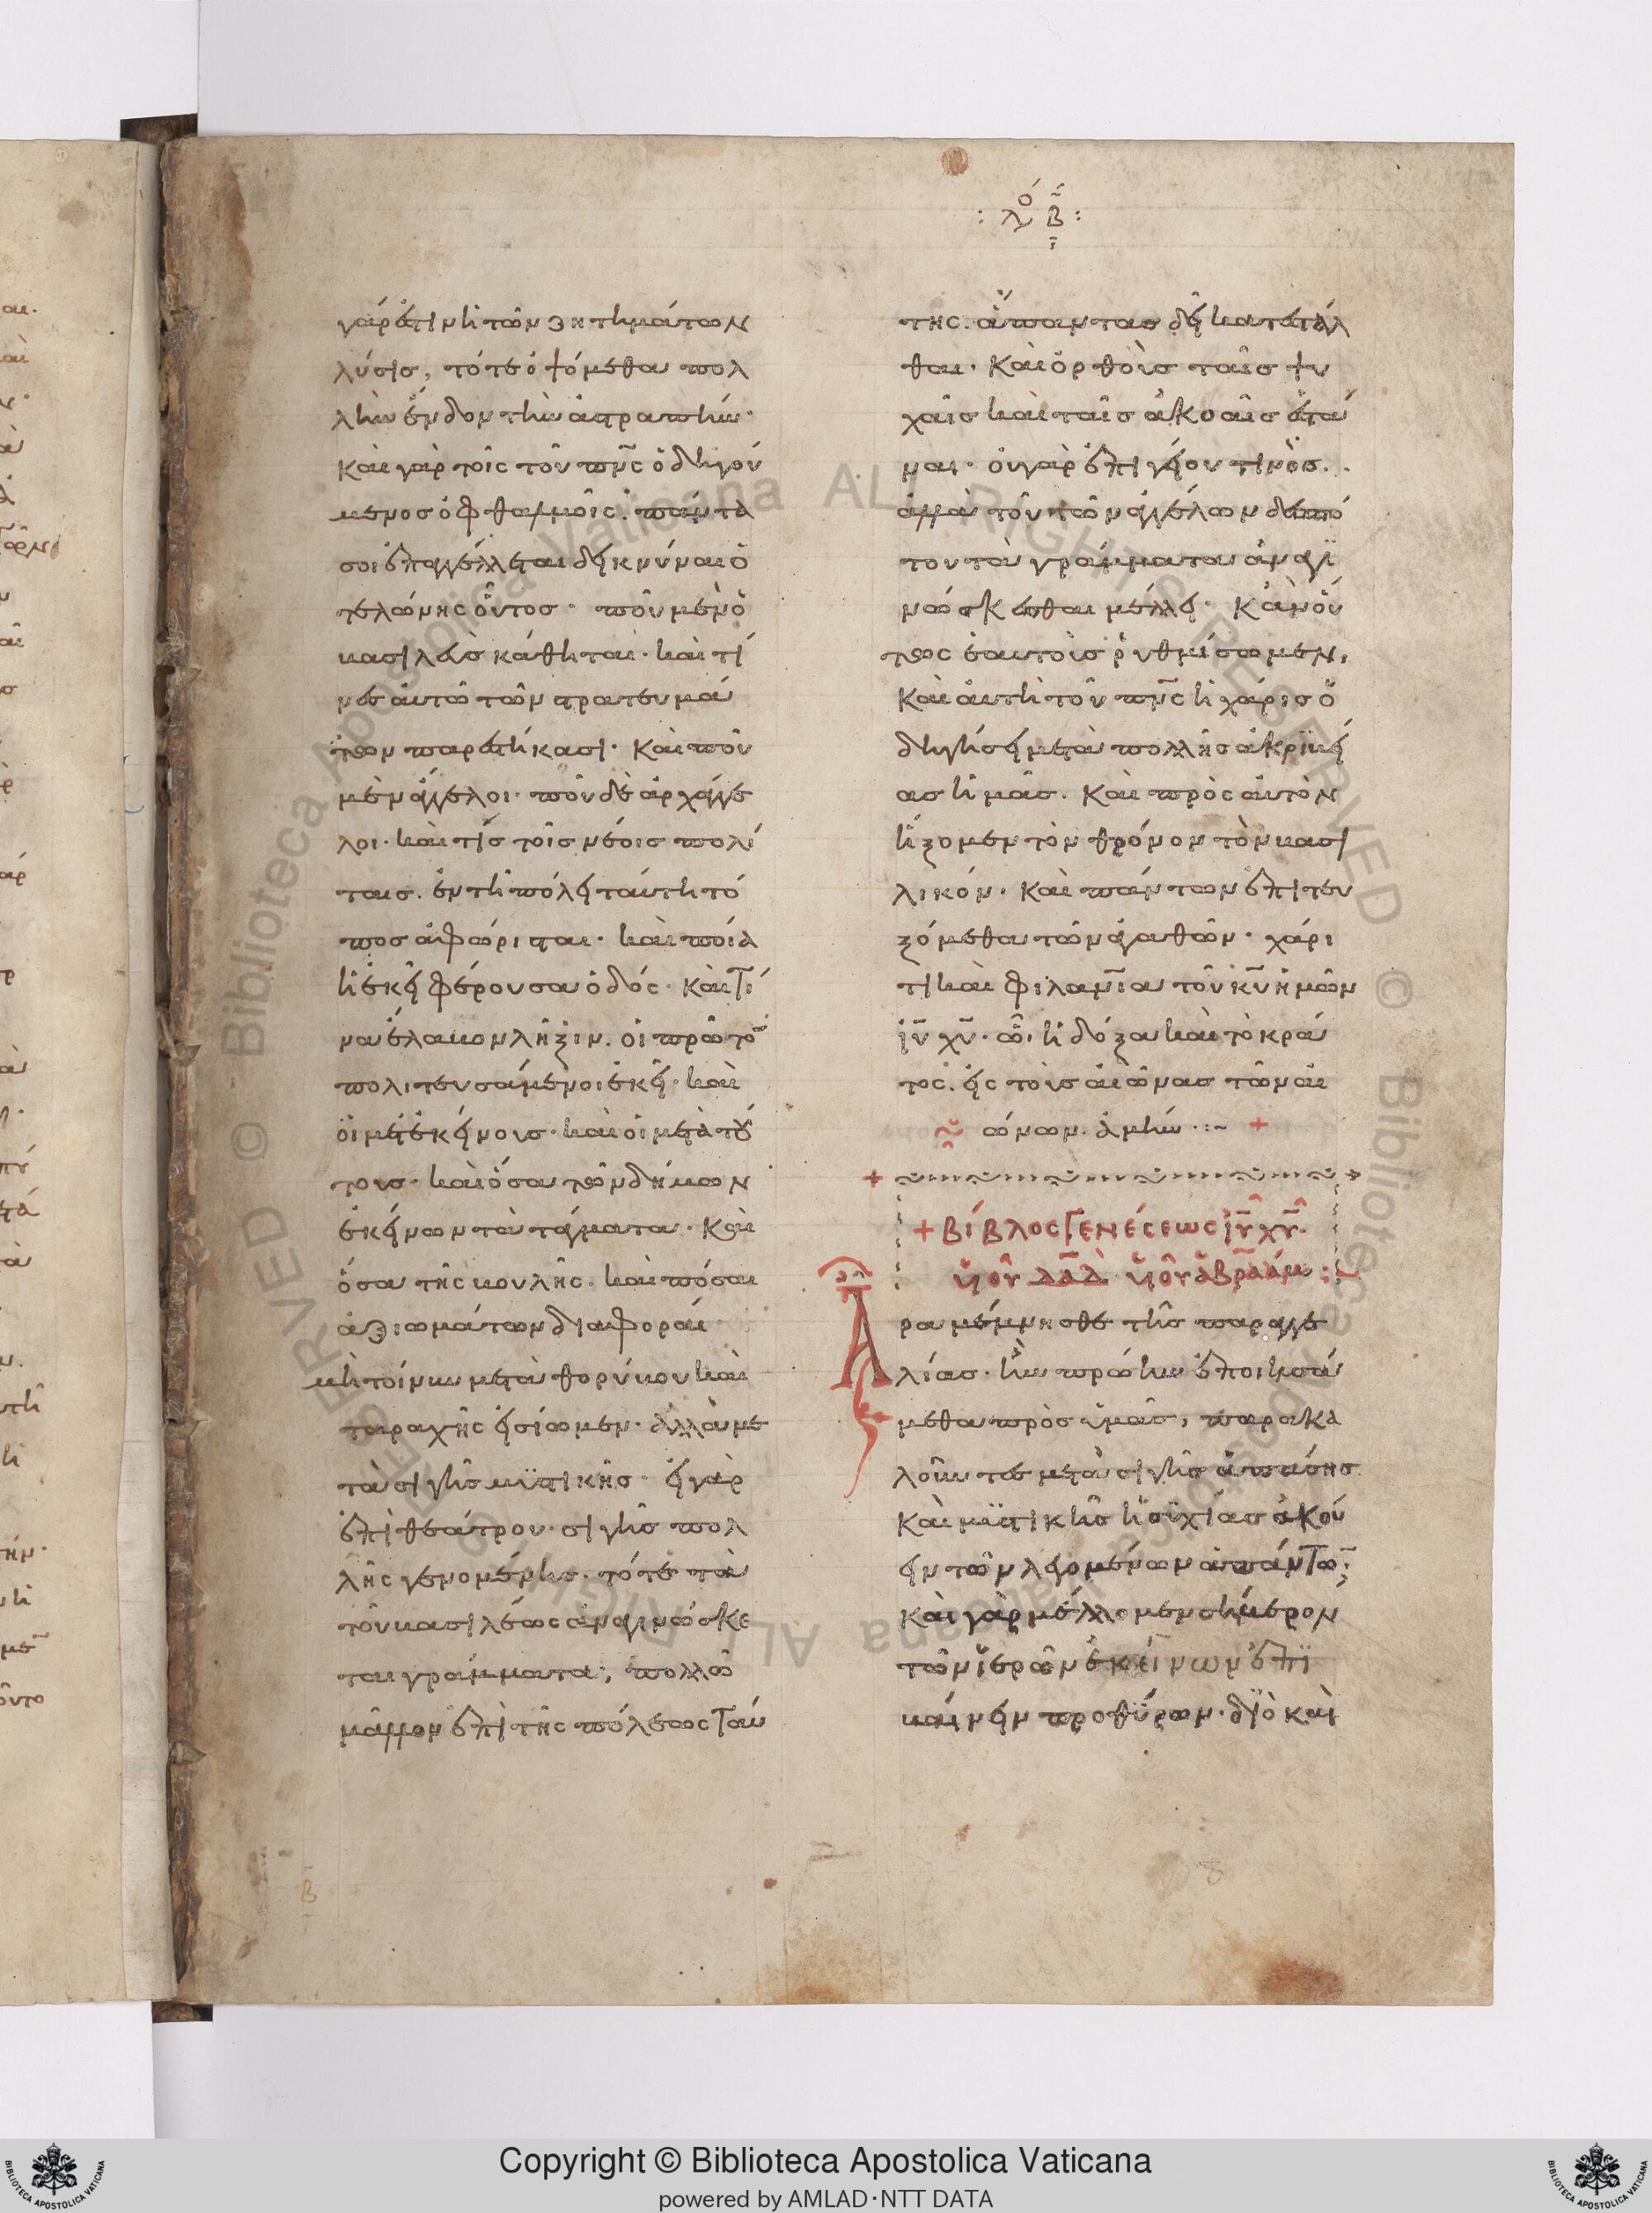 : λό β :
γάρ ἐστιν ἡ τῶν ζητημάτων
λύσις, τότε ὀψόμεθα πολ
λὴν ἔνδον τὴν ἀστραπήν·
καὶ γὰρ τοῖς τοῦ πν̅ς ὁδηγού
μενος ὀφθαλμοῖς. πάντά
σοι ἐπαγγέλλεται δεικνύναι ὁ
τελώνης οὗτος· ποῦ μὲν ὁ
βασιλεὺς κάθηται· καὶ τί
νες αὐτῶ τῶν στρατευμά
των παρεστήκασι· καὶ ποῦ
μὲν ἄγγελοι· ποῦ δὲ ἀρχάγγε
λοι· καὶ τίς τοῖς νέοις πολί
ταις. ἐν τῆ πόλει ταύτη τό
πος ἀφώρισται· καὶ ποία
ἡ ἐκεῖ φέρουσα ὁδός· καὶ τί
να ἔλαβον λῆξιν. οἱ πρῶτον
πολιτευσάμενοι ἐκεῖ· καὶ
οἱ μετ' ἐκείνους· καὶ οἱ μετὰ τού
τους· καὶ ὅσα τῶν δήμων
ἐκείνων τὰ τάγματα· καὶ
ὅσα τῆς βουλῆς. καὶ πόσαι
ἀξιωμάτων διαφοραί·
μὴ τοίνυν μετὰ θορύβου καὶ
ταραχῆς εἰσίωμεν· ἀλλὰ με
τὰ σιγῆς μυστικῆς· εἰ γὰρ
ἐπὶ θεάτρου· σιγῆς πολ
λῆς γενομένης· τότε τὰ
τοῦ βασιλέως ἀναγινώσκε
ται γράμματα, πολλῶ
μᾶλλον ἐπὶ τῆς πόλεως ταύ
της. ἅπαντας δεῖ κατεστάλ
θαι· καὶ ὀρθοὺς ταῖς ψυ
χαῖς καὶ ταῖς ἀκοαῖς ἑστά
ναι· οὐ γὰρ ἐπιγείου τινὸς..
ἀλλὰ τοῦ τῶν ἀγγέλων δεσπό
του τὰ γράμματα ἀναγι
νώσκεσθαι μέλλει· κἂν οὕ
τως ἑαυτοὺς ῥυθμίσωμεν,
καὶ αὐτὴ τοῦ πν̅ς ἡ χάρις ὁ
δηγήσει μετὰ πολλῆς ἀκριβεί
ας ἡμᾶς. καὶ πρὸς αὐτὸν
ἥξομεν τὸν θρόνον τὸν βασι
λικόν· καὶ πάντων ἐπιτευ
ξόμεθα τῶν ἀγαθῶν· χάρι
τι καὶ φιλαν̅ια τοῦ κ̅υ ἡμῶν
ι̅υ χ̅υ· ὧ, ἡ δόξα καὶ τὸ κρά
τος. εἰς τοὺς αἰῶνας τῶν αἰ
ώνων. ἀμήν·:~ +
+ βίβλος γενέσεως ι̅υ χ̅υ·
υἱοῦ δα̅δ υἱοῦ ἀβραάμ :~
Ἆρα μέμνησθε τῆς παραγγε
λίας· ἣν πρώην ἐποιησά
μεθα πρὸς ὑμᾶς, παρακα
λοῦντες μετὰ σιγῆς ἁπάσης
καὶ μυστικῆς ἡσυχίας ἀκού
ειν τῶν λεγομένων ἁπάντων;
καὶ γὰρ μέλλομεν σήμερον
τῶν ἱερῶν ἐκείνων ἐπι
βαίνειν προθύρων· διὸ καὶ
β